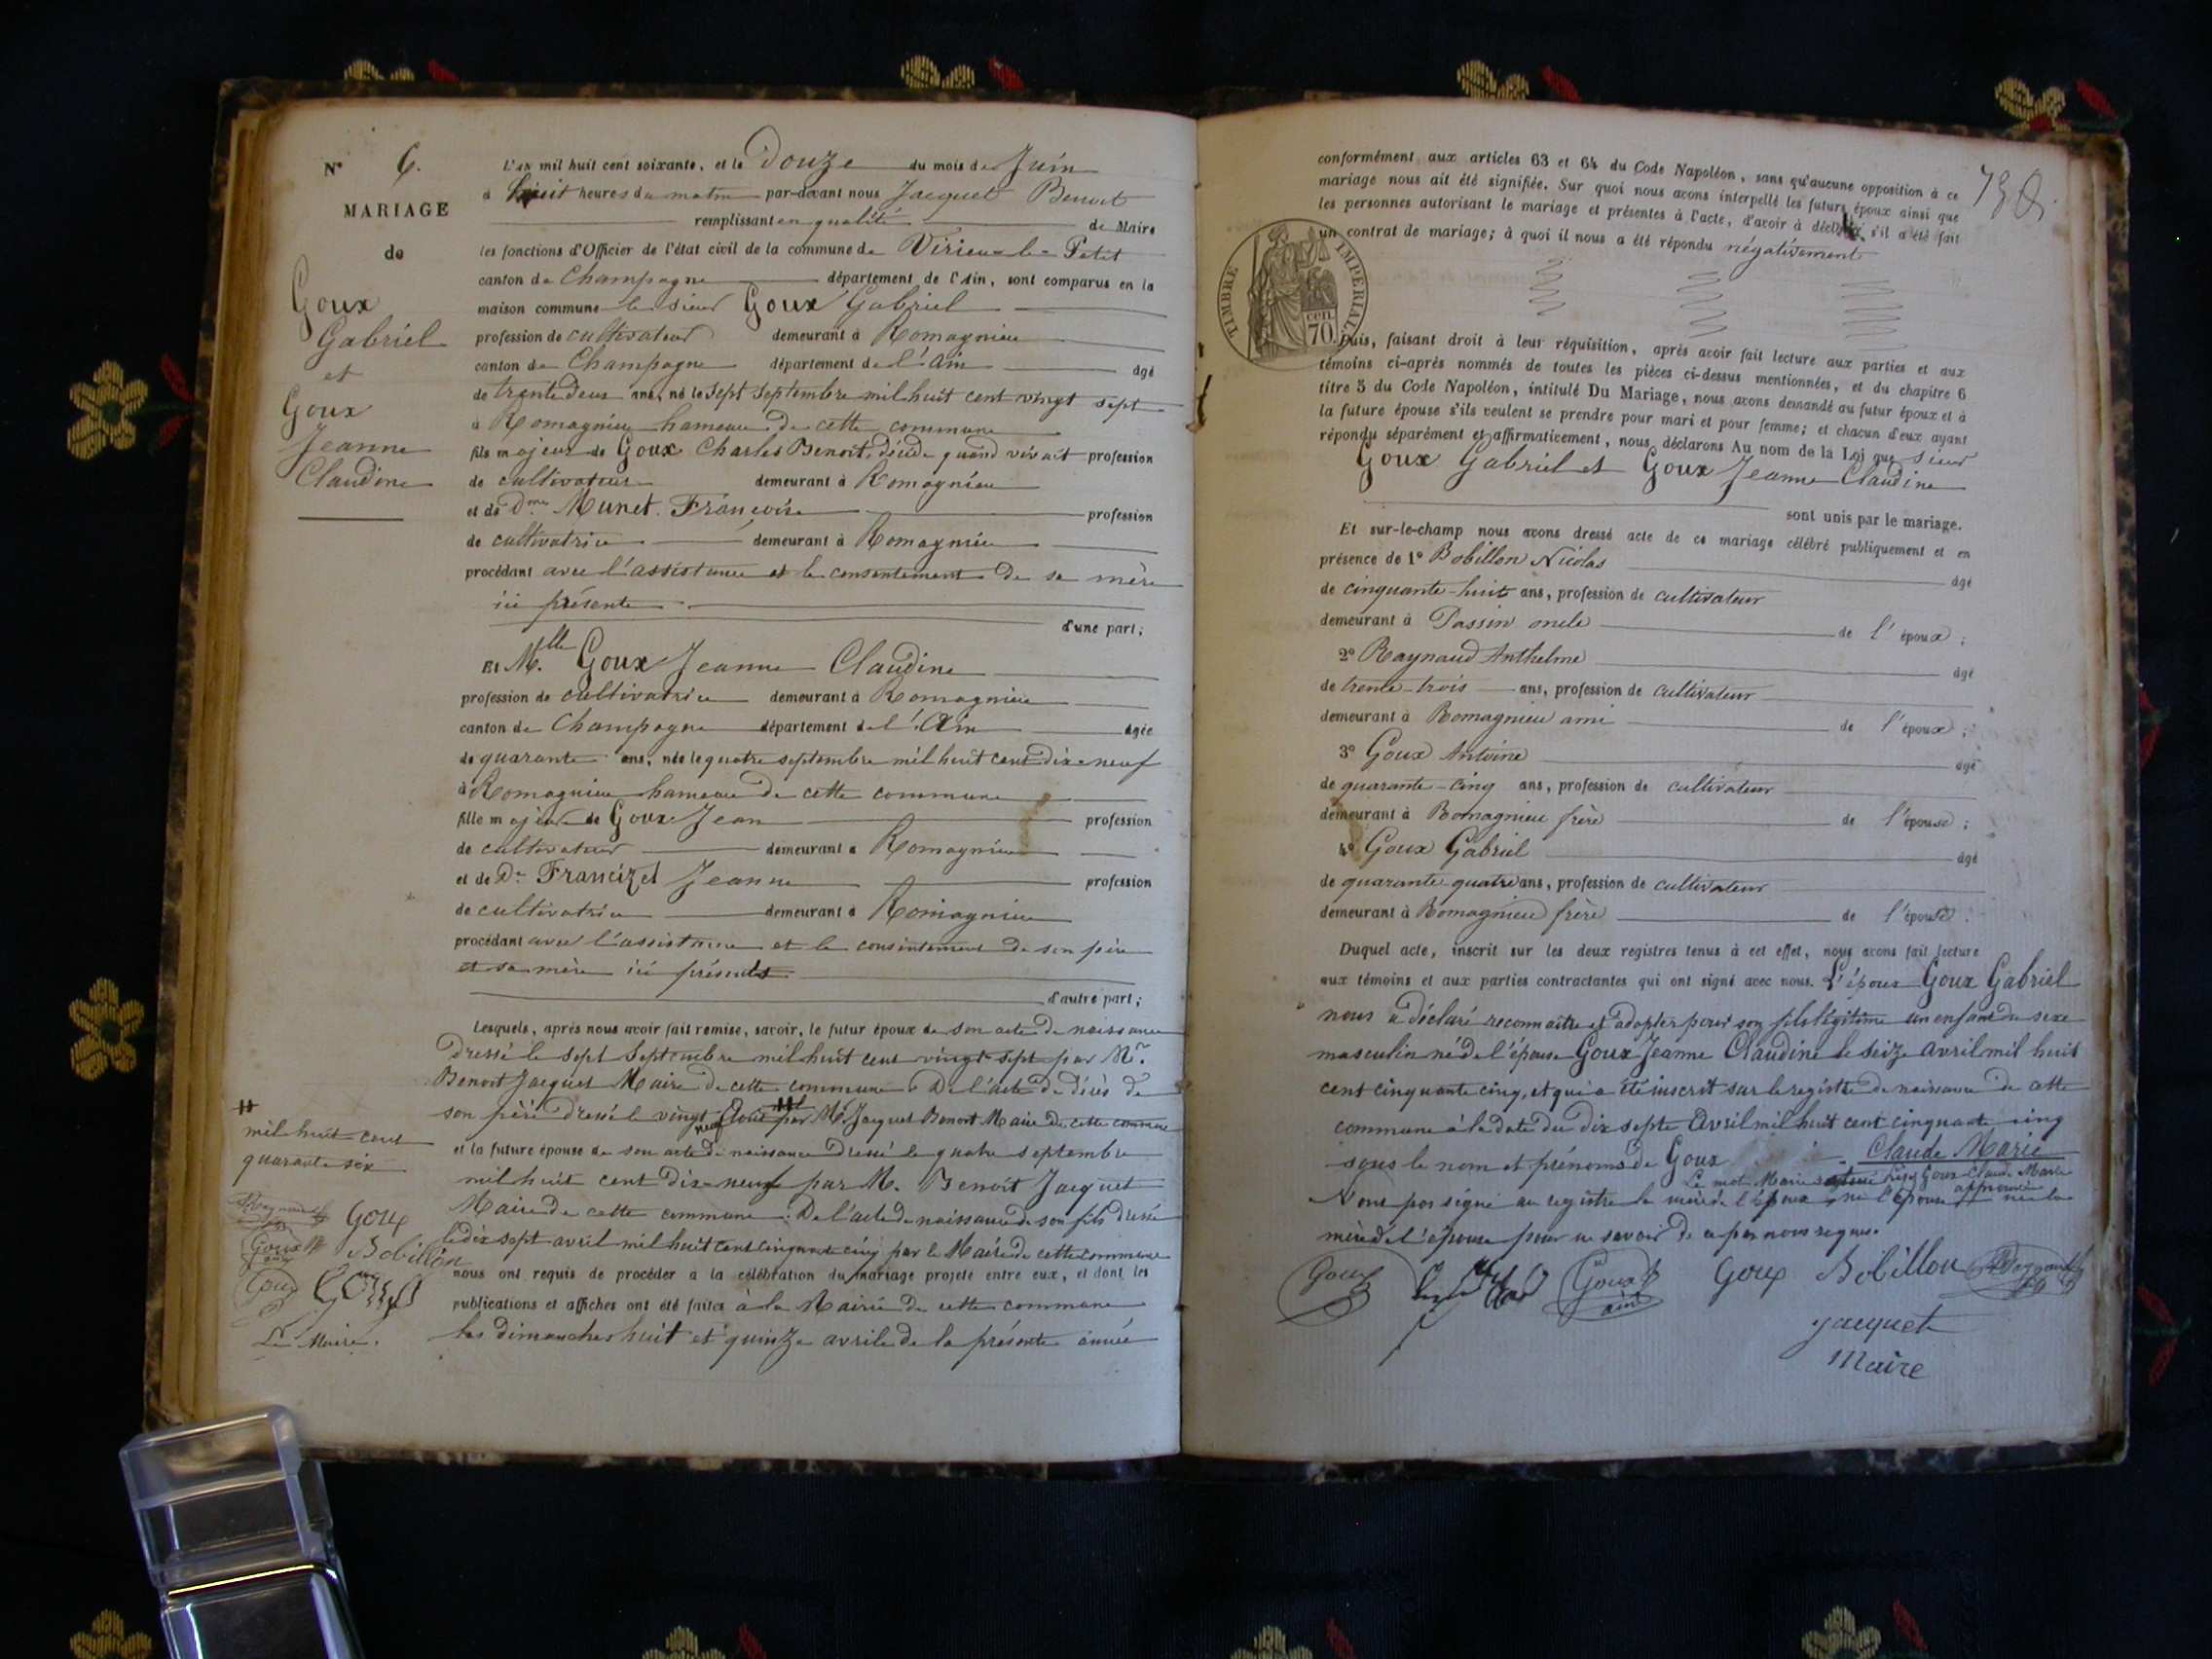 N° 6.
MARIAGE
de
Goux
Gabriel
et
Goux
Jeanne
Claudine
L'AN mil huit cent soixante, et le Douze du mois de Juin
à huit heures du matin par-devant nous Jacquet Benoit
remplissant en qualité de Maire
les fonctions d'Officier de l'état civil de la commune de Virieu-le-Petit
canton de Champagne département de l'Ain, sont comparus en la
maison commune le sieur Goux Gabriel
profession de cultivateur demeurant à Romagnieu
canton de Champagne département de l'Ain âgé
de trente deux ans, né le sept Septembre mil huit cent vingt sept
à Romagnieu hameau de cette commune
fils majeur de Goux Charles Benoit, décédé quand vivait profession
de cultivateur demeurant à Romagnieu
et de Dme Munet Françoise profession
de cultivatrice demeurant à Romagnieu
procédant avec l'assistance et le consentement de sa mère
ici présente
d'une part;
Et Mlle Goux Jeanne Claudine
profession de cultivatrice demeurant à Romagnieu
canton de Champagne département de l'Ain âgée
de quarante ans, née le quatre septembre mil huit cent dix-neuf
à Romagnieu hameau de cette commune
fille majeure de Goux Jean profession
de cultivateur demeurant à Romagnieu
et de De Francizet Jeanne profession
de cultivatrice demeurant à Romagnieu
procédant avec l'assistance et le consentement de son père
et sa mère ici présents
d'autre part;
Lesquels, après nous avoir fait remise, savoir, le futur époux de son acte de naissance
dressé le sept Septembre mil huit cent vingt-sept par Mr
Benoit Jacquet Maire de cette commune. De l'acte de décès de
son père dressé le vingt neuf par Mr Jacquet Benoit Maire de cette commune
et la future épouse de son acte de naissance dressé le quatre septembre
mil huit cent dix-neuf par M. Benoit Jacquet
Maire de cette commune. De l'acte de naissance de son fils dressé
le dix sept avril mil huit cent cinquante cinq par le Maire de cette commune
nous ont requis de procéder à la célébration du mariage projeté entre eux, et dont les
publications et affiches ont été faites à la Mairie de cette commune
les dimanches huit et quinze avril de la présente année
mil huit cent
quarante six
Goux
Goux Bobillon
Goux
Le Maire.
conformément aux articles 63 et 64 du Code Napoléon, sans qu'aucune opposition à ce
mariage nous ait été signifiée. Sur quoi nous avons interpellé les futurs époux ainsi que
les personnes autorisant le mariage et présentes à l'acte, d'avoir à déclarer s'il a été fait
un contrat de mariage; à quoi il nous a été répondu négativement
TIMBRE IMPERIAL
70 cen
Puis, faisant droit à leur réquisition, après avoir fait lecture aux parties et aux
témoins ci-après nommés de toutes les pièces ci-dessus mentionnées, et du chapitre 6
titre 5 du Code Napoléon, intitulé Du Mariage, nous avons demandé au futur époux et à
la future épouse s'ils veulent se prendre pour mari et pour femme; et chacun d'eux ayant
répondu séparément et affirmativement, nous déclarons Au nom de la Loi que sieur
Goux Gabriel et Goux Jeanne Claudine
sont unis par le mariage.
Et sur-le-champ nous avons dressé acte de ce mariage célébré publiquement et en
présence de 1° Bobillon Nicolas âgé
de cinquante-huit ans, profession de cultivateur
demeurant à Passin oncle de l'époux;
2° Raynaud Anthelme âgé
de trente-trois ans, profession de cultivateur
demeurant à Romagnieu ami de l'époux;
3° Goux Antoine âgé
de quarante-cinq ans, profession de cultivateur
demeurant à Romagnieu frère de l'épouse;
4° Goux Gabriel âgé
de quarante-quatre ans, profession de cultivateur
demeurant à Romagnieu frère de l'épouse.
Duquel acte, inscrit sur les deux registres tenus à cet effet, nous avons fait lecture
aux témoins et aux parties contractantes qui ont signé avec nous. L'époux Goux Gabriel
nous a déclaré reconnaître et adopter pour son fils légitime un enfant du sexe
masculin né de l'épouse Goux Jeanne Claudine le seize avril mil huit
cent cinquante cinq, et qui a été inscrit sur le registre de naissance de cette
commune à la date du dix sept Avril mil huit cent cinquante cinq
sous le nom et prénoms de Goux Claude Marie
Goux Claude Marie approuvé
N'ont pas signé au registre la mère de l'époux, ni l'épouse ni la
mère de l'épouse pour ne savoir de ce par nous requis.
Goux Goux ainé Goux Bobillon
Jacquet
Maire